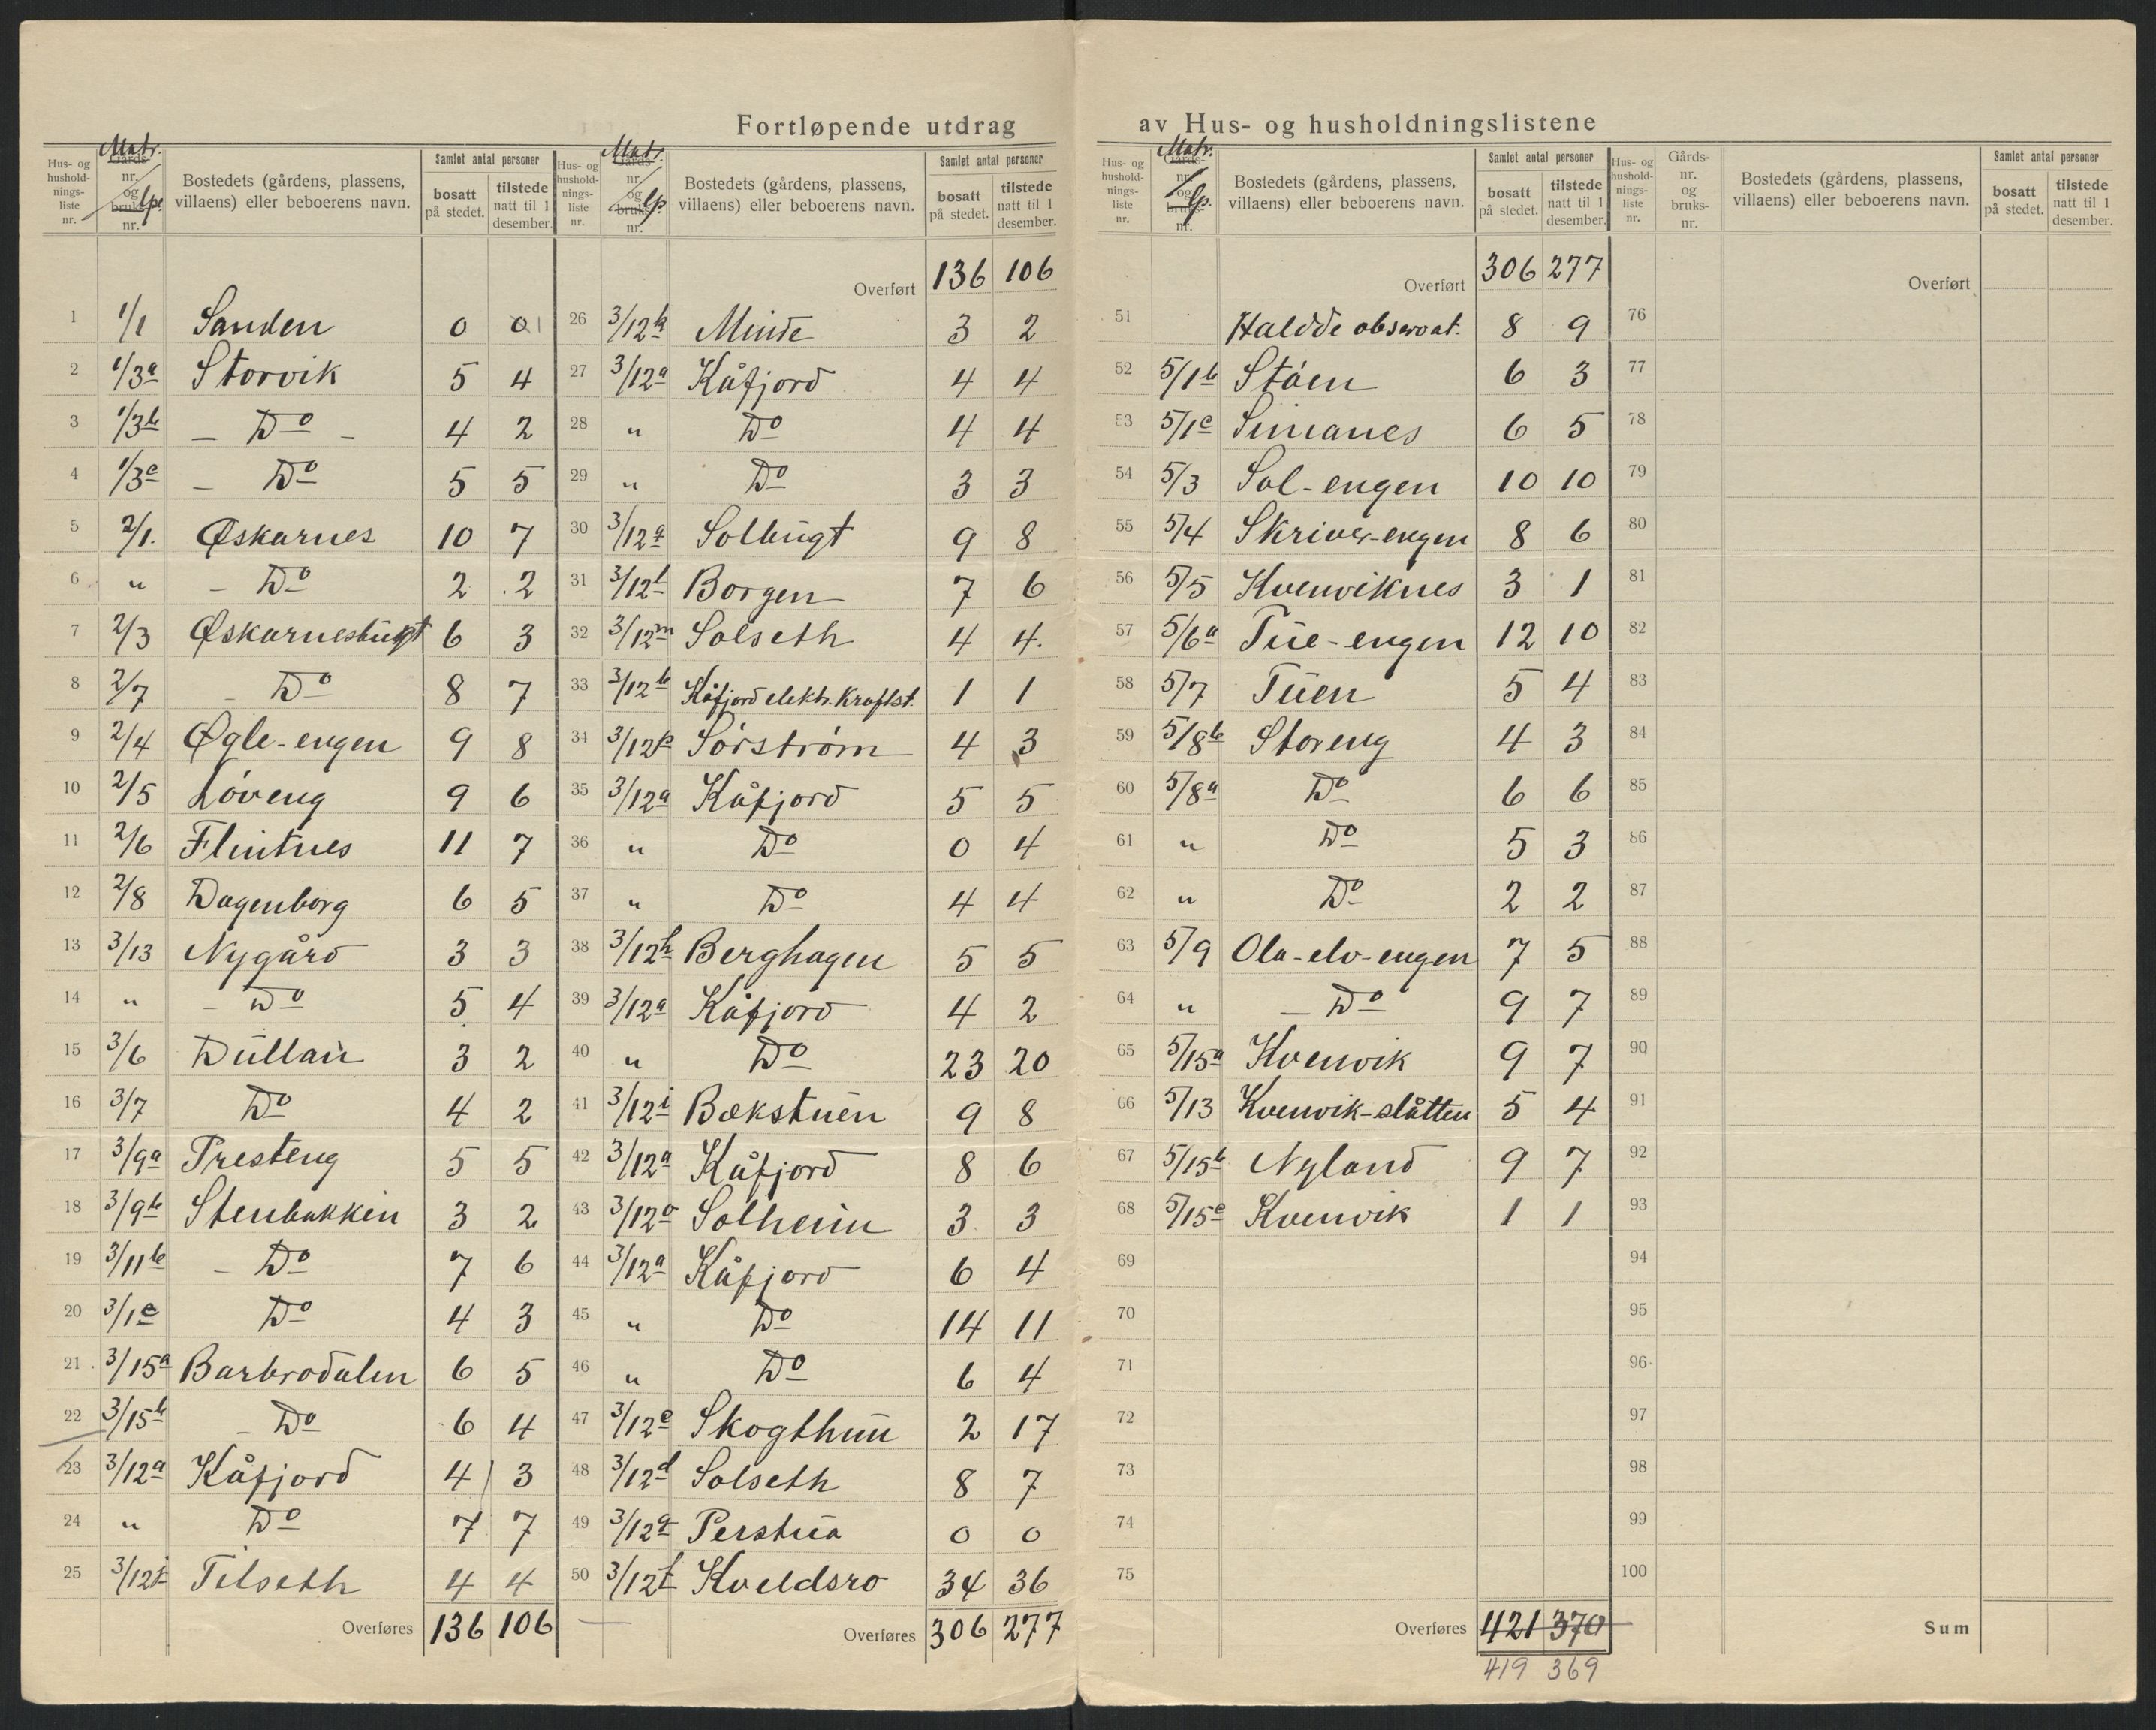 Fortløpende utdrag av Hus- og husholdningslistene
Hus- og husholdningsliste nr. | Matr. Gårds- nr. og bruks- nr. Lp. | Bostedets (gårdens, plassens, villaens) eller beboerens navn. | Samlet antal personer | bosatt på stedet. | tilstede natt til 1 desember.
1 1/1 Sanden 0 0
2 1/3a Storvik 5 4
3 1/3b – Do – 4 2
4 1/3c – Do 5 5
5 2/1. Øskarnes 10 7
6 " – Do 2 2
7 2/3 Øskarnesbugt 6 3
8 2/7 – Do 8 7
9 2/4 Øgle-engen 9 8
10 2/5 Løveng 9 6
11 2/6 Flintnes 11 7
12 2/8 Dagenborg 6 5
13 3/13 Nygård 3 3
14 " – Do 5 4
15 3/6 Dullan 3 2
16 3/7 Do 4 2
17 3/9a Presteng 5 5
18 3/9b Stenbakken 3 2
19 3/11b – Do 7 6
20 3/1c Do 4 3
21 3/15a Barbrodalen 6 5
22 3/15b – Do 6 4
23 3/12a Kåfjord 4 3
24 " Do 7 7
25 3/12 Tilseth 4 4
Overføres 136 106
Hus- og husholdningsliste nr. | Matr. Gårds nr. og bruks- nr. Lp. | Bostedets (gårdens, plassens, villaens) eller beboerens navn. | Samlet antal personer | bosatt på stedet. | tilstede natt til 1 desember.
Overført 136 106
26 3/12k Minde 3 2
27 3/12a Kåfjord 4 4
28 " Do 4 4
29 " Do 3 3
30 3/12g Solbugt 9 8
31 3/12l Borgen 7 6
32 3/12m Solseth 4 4.
33 3/12b Kåfjord elektr. Kraftst. 1 1
34 3/12p Sørstrøm 4 3
35 3/12a Kåfjord 5 5
36 " Do 0 4
37 " Do 4 4
38 3/12h Berghagen 5 5
39 3/12a Kåfjord 4 2
40 " Do 23 20
41 3/12i Bækstuen 9 8
42 3/12a Kåfjord 8 6
43 3/12o Solheim 3 3
44 3/12a Kåfjord 6 4
45 " Do 14 11
46 " Do 6 4
47 3/12e Skogthun 2 17
48 3/12d Solseth 8 7
49 3/12q Perstua 0 0
50 3/12f Kveldsro 34 36
Overføres 306 277
Hus- og husholdningsliste nr. | Matr. Gårds- nr. og bruks- nr. Lp. | Bostedets (gårdens, plassens, villaens) eller beboerens navn. | Samlet antal personer | bosatt på stedet. | tilstede natt til 1 desember.
Overført 306 277
51 Haldde observat. 8 9
52 5/1b Støen 6 3
53 5/1c Simanes 6 5
54 5/3 Sol-engen 10 10
55 5/4 Skriver-engen 8 6
56 5/5 Kvenviknes 3 1
57 5/6a Tue-engen 12 10
58 5/7 Tuen 5 4
59 5/8b Storeng 4 3
60 5/8a Do 6 6
61 " Do 5 3
62 " Do 2 2
63 5/9 Ola-elv-engen 7 5
64 " – Do 9 7
65 5/15a Kvenvik 9 7
66 5/13 Kvenvik-slåtten 5 4
67 5/15b Nyland 9 7
68 5/15c Kvenvik 1 1
69
70
71
72
73
74
75
Overføres 421 370
419 369
Hus- og husholdningsliste nr. | Gårds- nr. og bruks- nr. | Bostedets (gårdens, plassens, villaens) eller beboerens navn. | Samlet antal personer | bosatt på stedet. | tilstede natt til 1 desember.
Overført
76
77
78
79
80
81
82
83
84
85
86
87
88
89
90
91
92
93
94
95
96
97
98
99
100
Sum